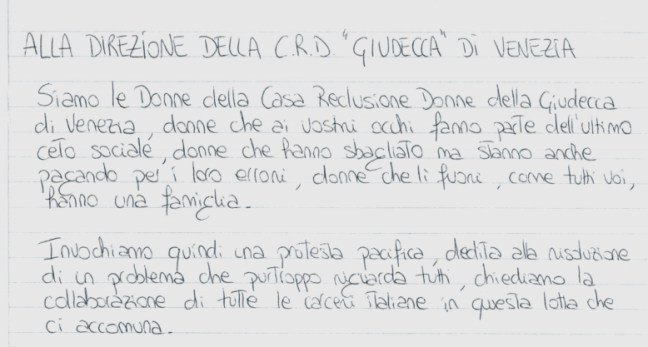 ALLA DIREZIONE DELLA C.R.D "GIUDECCA" DI VENEZIA
Siamo le Donne della Casa Reclusione Donne della Giudecca
di Venezia, donne che ai vostri occhi fanno parte dell'ultimo
ceto sociale, donne che hanno sbagliato ma stanno anche
pagando per i loro errori, donne che li fuori, come tutti voi,
hanno una famiglia.
Invochiamo quindi una protesta pacifica, dedita alla risoluzione
di un problema che purtroppo riguarda tutti, chiediamo la
collaborazione di tutte le carceri italiane in questa lotta che
ci accomuna.